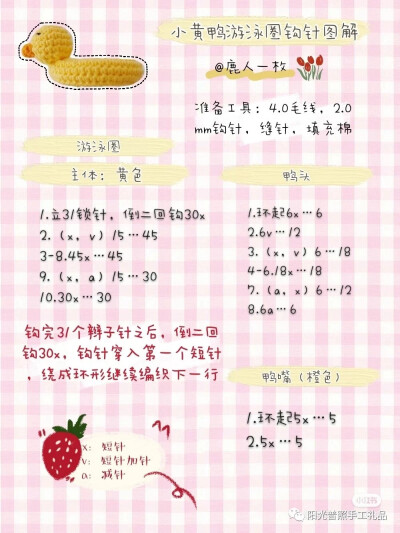 小黄鸭游泳圈钩针图解
@鹿人一枚
准备工具：4.0毛线，2.0
mm钩针，缝针，填充棉
游泳圈
主体：黄色
1.立31锁针，倒二回钩30x
2.（x，v）15…45
3-8.45x…45
9.（x，a）15…30
10.30x…30
钩完31个辫子针之后，倒二回
钩30x，钩针穿入第一个短针
，绕成环形继续编织下一行
x：短针
v：短针加针
a：减针
鸭头
1.环起6x…6
2.6v…12
3.（x，v）6…18
4-6.18x…18
7.（a，x）6…12
8.6a…6
鸭嘴（橙色）
1.环起5x…5
2.5x…5
小红书
阳光普照手工礼品